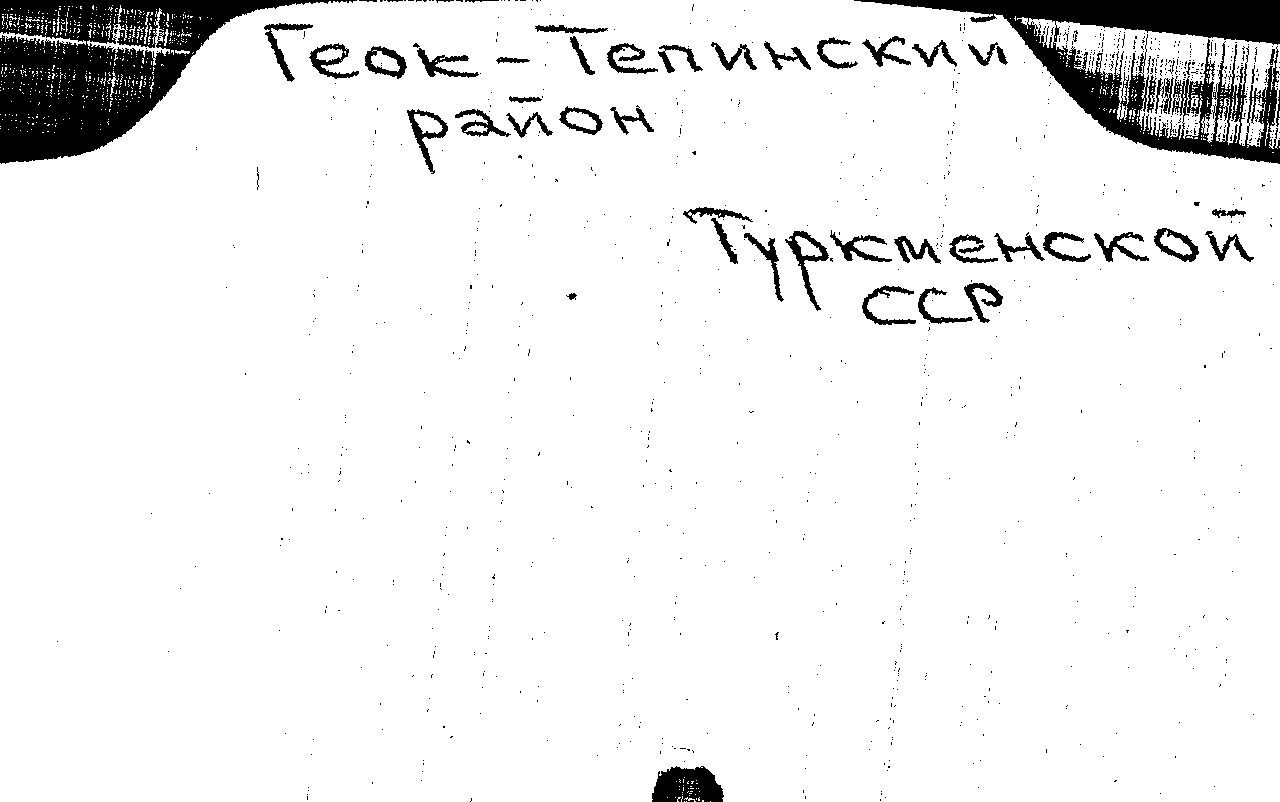 Геок-Тепинский
район
Туркменской
ССР